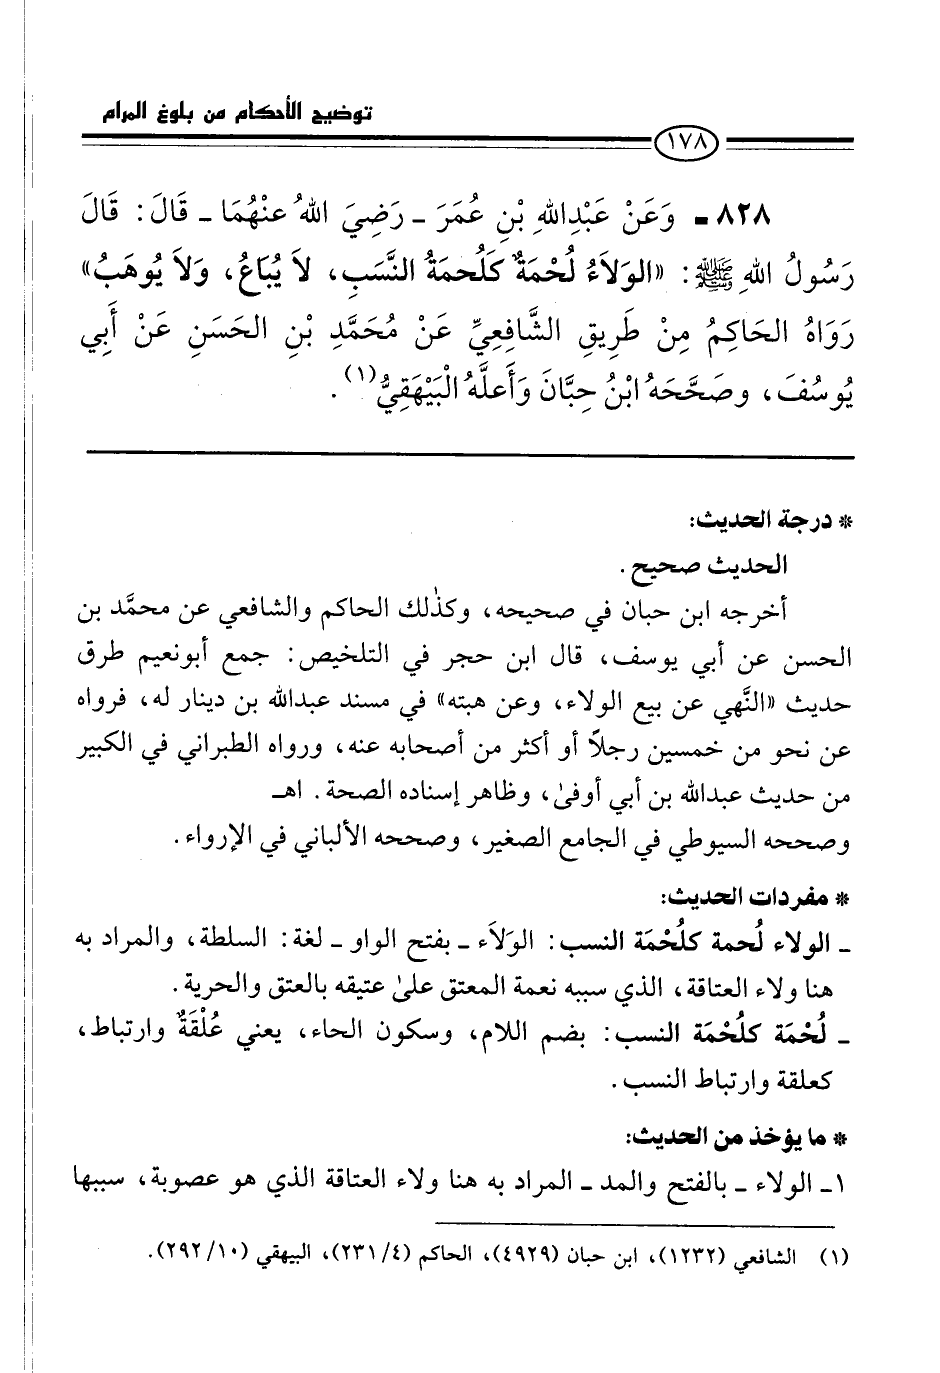 توضيح الأحكام من بلوغ المرام
١٧٨
٨٢٨ - وَعَنْ عَبْدِاللهِ بْنِ عُمَرَ - رَضِيَ اللهُ عنْهُمَا - قَالَ: قَالَ
رَسُولُ اللهِ ﷺ: «الوَلاَءُ لُحْمَةٌ كَلُحمَةُ النَّسَبِ، لاَ يُبَاعُ، وَلاَ يُوهَبُ»
رَوَاهُ الحَاكِمُ مِنْ طَرِيقِ الشَّافِعِيِّ عَنْ مُحَمَّدِ بْنِ الحَسَنِ عَنْ أَبِي
يُوسُفَ، وصَحَّحَهُ ابْنُ حِبَّانَ وَأَعلَّهُ الْبَيْهَقِيُّ(١).
* درجة الحديث:
الحديث صحيح.
أخرجه ابن حبان في صحيحه، وكذٰلك الحاكم والشافعي عن محمَّد بن
الحسن عن أبي يوسف، قال ابن حجر في التلخيص: جمع أبونعيم طرق
حديث «النَّهي عن بيع الولاء، وعن هبته» في مسند عبدالله بن دينار له، فرواه
عن نحو من خمسين رجلاً أو أكثر من أصحابه عنه، ورواه الطبراني في الكبير
من حديث عبدالله بن أبي أوفىٰ، وظاهر إسناده الصحة. اهـ
وصححه السيوطي في الجامع الصغير، وصححه الألباني في الإرواء.
* مفردات الحديث:
- الولاء لُحمة كلُحْمَة النسب: الوَلاَء - بفتح الواو - لغة: السلطة، والمراد به
هنا ولاء العتاقة، الذي سببه نعمة المعتق علىٰ عتيقه بالعتق والحرية.
- لُحْمَة كلُحْمَة النسب: بضم اللام، وسكون الحاء، يعني عُلْقَةٌ وارتباط،
كعلقة وارتباط النسب.
* ما يؤخذ من الحديث:
١- الولاء - بالفتح والمد - المراد به هنا ولاء العتاقة الذي هو عصوبة، سببها
(١) الشافعي (١٢٣٢)، ابن حبان (٤٩٢٩)، الحاكم (٢٣١/٤)، البيهقي (٢٩٢/١٠).